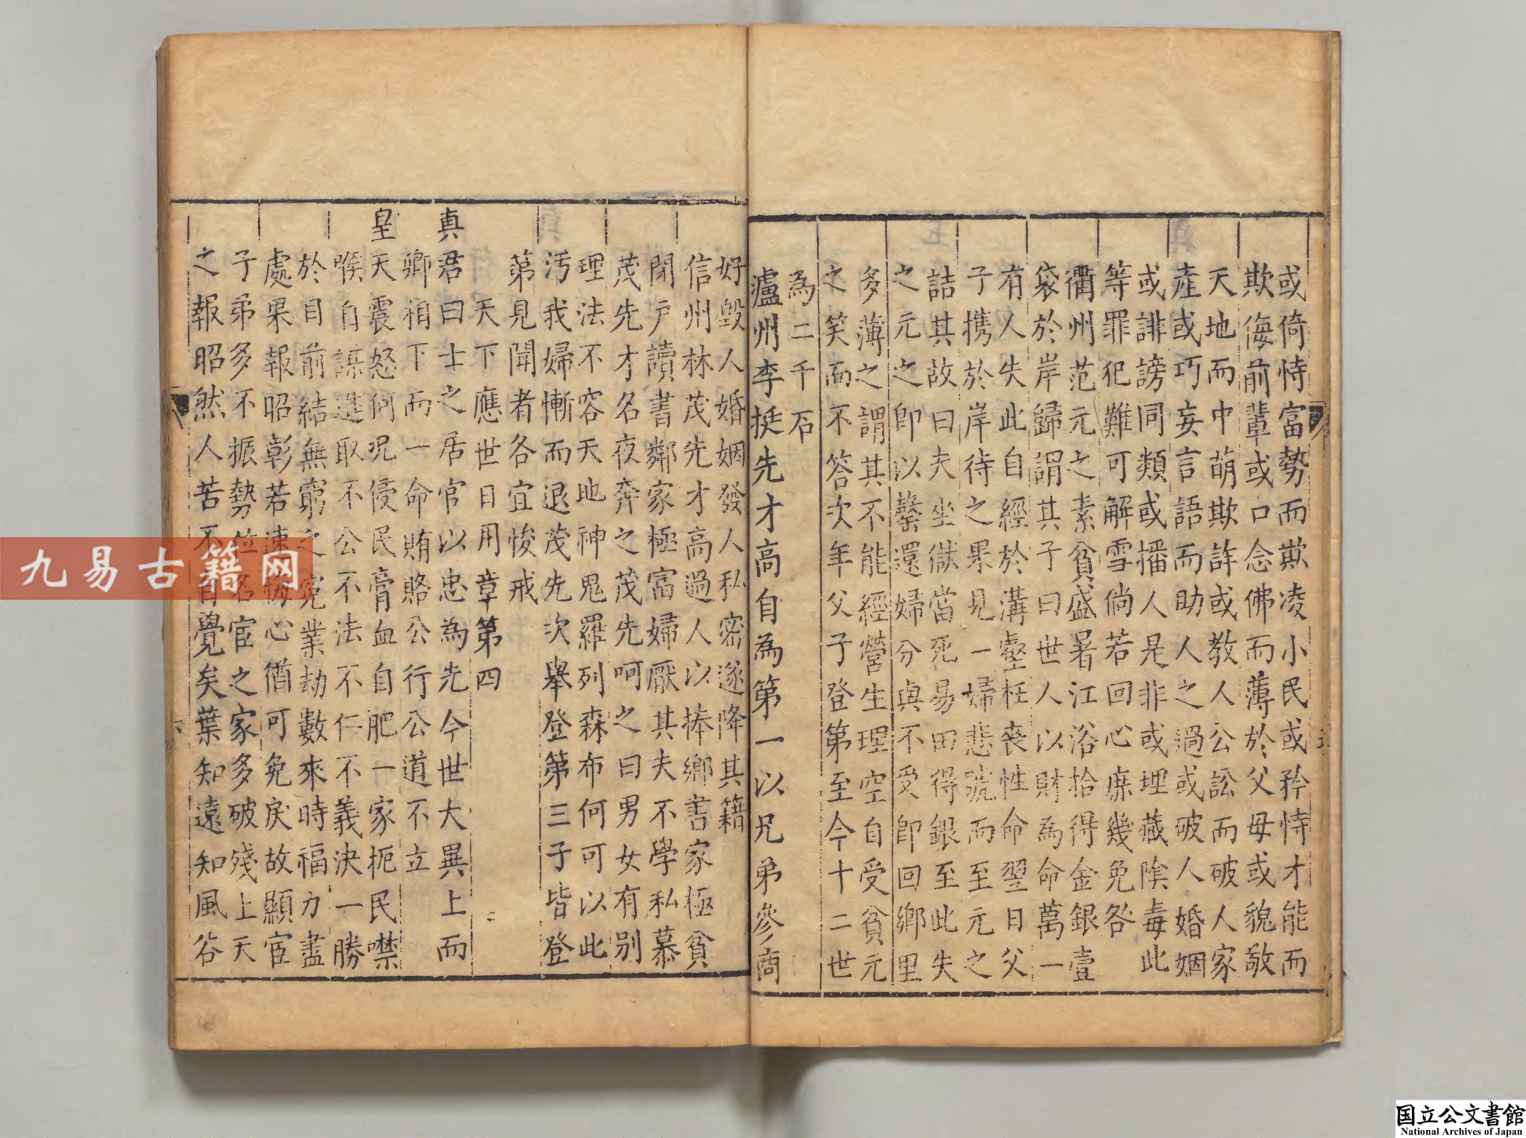 或倚恃富勢而欺凌小民或矜恃才能而
欺侮前輩或口念佛而薄於父母或貌敬
天地而中萌欺詐或教人公訟而破人家
產或巧妄言語而助人之過或破人婚姻
或誹謗同類或播人是非或埋藏陰毒此
等罪犯難可解雪倘若回心庶幾免咎
衢州范元之素貧盛暑江浴拾得金銀壹
袋於岸歸謂其子曰世人以財為命萬一
有人失此自經於溝壑枉喪性命翌日父
子攜於岸待之果見一婦悲號而至元之
詰其故曰夫坐獄當死易田得銀至此失
之元之卽以罄還婦分與不受卽回鄉里
多薄之謂其不能經營生理空自受貧元
之笑而不答次年父子登第至今十二世
為二千石
瀘州李挺先才高自為第一以兄弟參商
好毀人婚姻發人私密遂降其籍
信州林茂先才高過人以捧鄉書家極貧
閉戶讀書鄰家極富婦厭其夫不學私慕
茂先才名夜奔之茂先呵之曰男女有別
理法不容天地神鬼羅列森布何可以此
汚我婦慚而退茂先次舉登第三子皆登
第見聞者各宜悛戒
天下應世日用章第四
真君曰士之居官以忠為先今世大異上而
卿相下而一命賄賂公行公道不立
皇天震怒何況侵民膏血自肥一家扼民噤
喉自謀進取不公不法不仁不義決一勝
於目前結無窮之冤業劫數來時福力盡
處果報昭彰若速悔心猶可免戾故顯宦
子弟多不振勢位名宦之家多破殘上天
之報昭然人苦不自覺矣葉知遠知風谷
九易古籍网
国立公文書館
National Archives of Japan